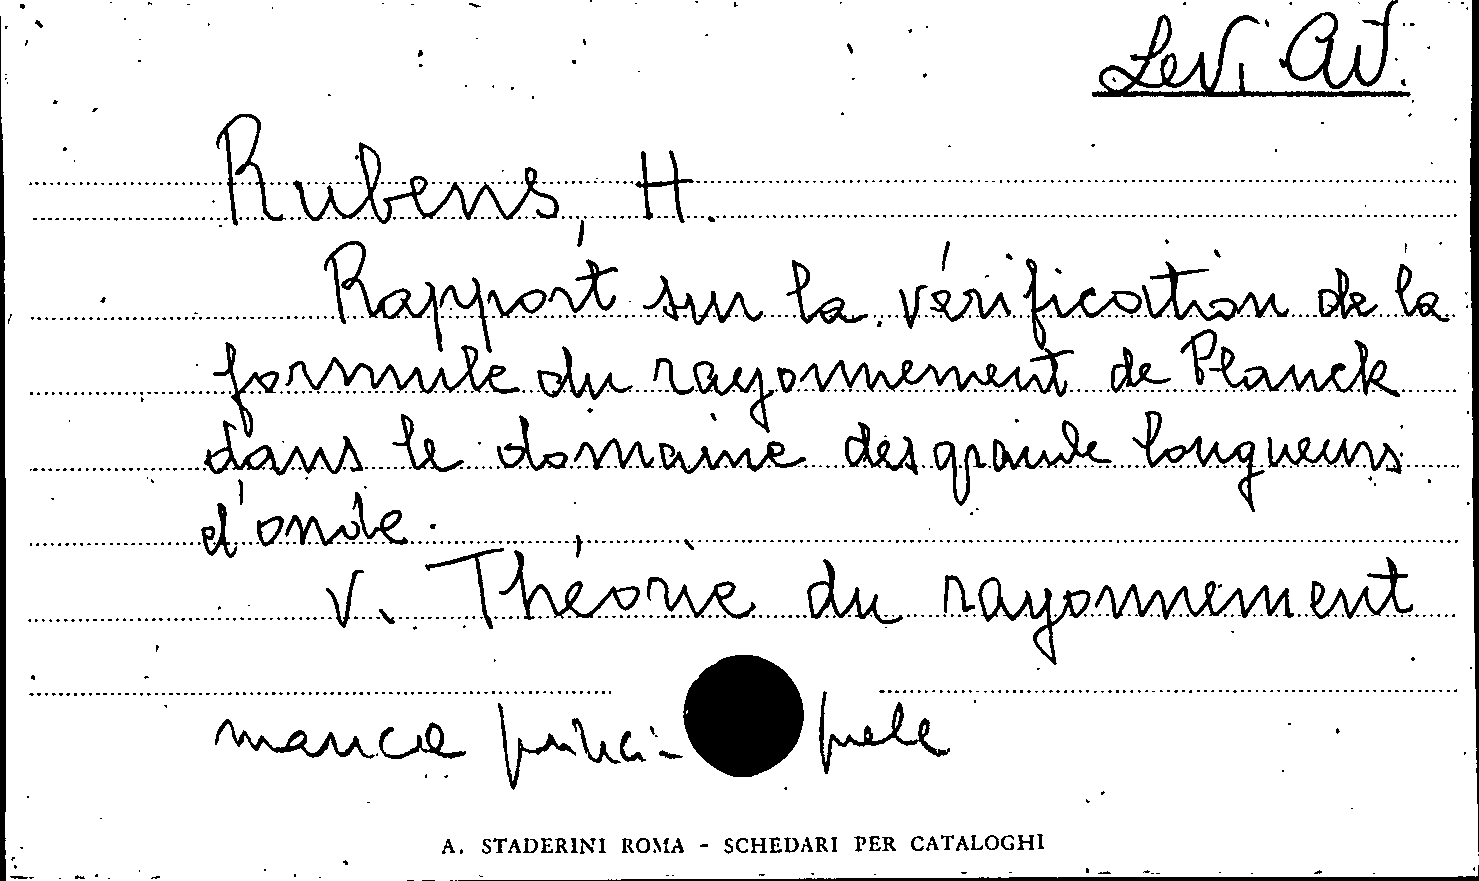 Levi Civ.
Rubens, H.
Rapport sur la vérification de la
formule du rayonnement de Planck
dans le domaine des grande longueurs
d'onde.
V. Théorie du rayonnement
manca princi- pale
A. STADERINI ROMA - SCHEDARI PER CATALOGHI